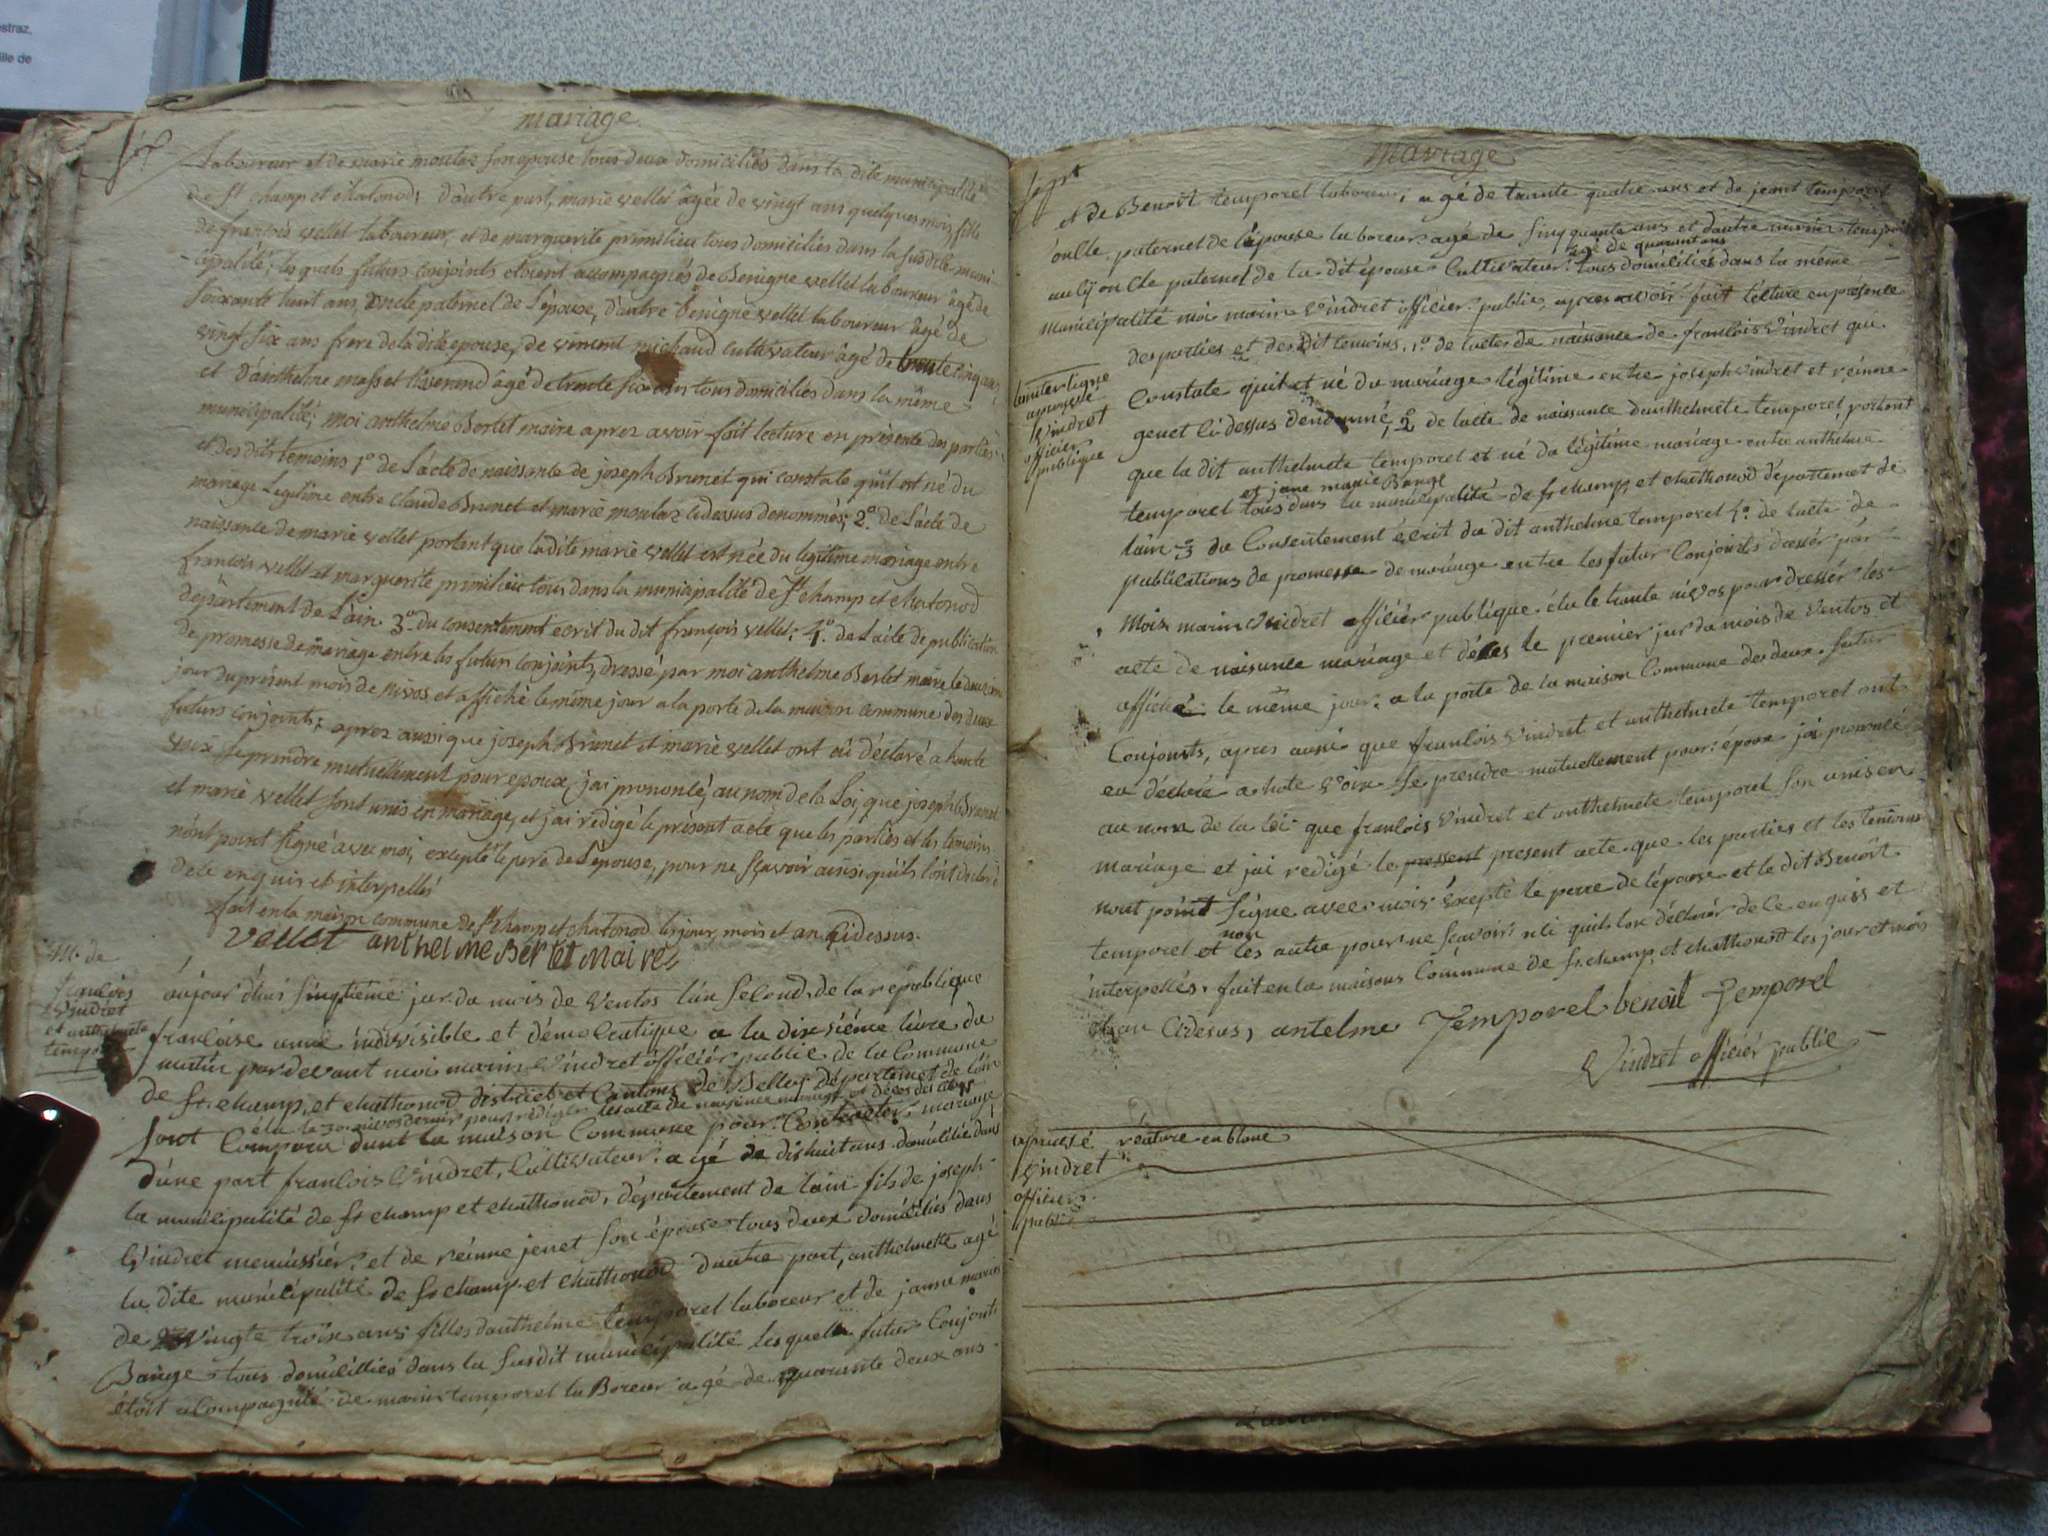 estraz,
ille de
mariage
six
Laboureur et de marie moulaz son epouse tous deux domiciliés dans la dite municipalité
de St champ et chatonod; d'autre part, marie vellet âgée de vingt ans quelques mois, fille
de francois vellet laboureur, et de marguerite primilieu tous domiciliés dans la susdite muni-
-cipalité; les quels futurs conjoints etoient accompagnés de Benigne vellet laboureur âgé de
soixante huit ans, oncle paternel de L'épouse, d'autre Benigne vellet laboureur âgé de
vingt six ans frere de la dite epouse, de vincent michaud cultivateur âgé de trente cinq ans,
et d'anthelme masset tisserand âgé de trente six ans tous domiciliés dans la même
municipalité; moi anthelme Berlet maire aprez avoir fait lecture en présence des parties
et des dits temoins 1° de L'acte de naissance de joseph Brunet qui constate qu'il est né du
mariage Legitime entre claude Brunet et marie moulaz cidessus denommés; 2° de L'acte de
naissance de marie vellet portent que ladite marie vellet est née du legitime mariage entre
francois vellet et marguerite primilieu tous dans la municipalité de St champ et chatonod
département de L'ain 3° du consentement ecrit du dit françois vellet; 4° de L'acte de publication
de promesse de mariage entre les futurs conjoints, dressé par moi anthelme Berlet maire le deuxieme
jour du présent mois de Nivos, et affiché le même jour a la porte de la maison commune des deux
futurs conjoints; aprez aussi que joseph Brunet et marie vellet ont eû déclaré a haute
voix se prendre mutuellement pour epoux, j'ai prononcé, au nom de la Loi, que joseph Brunet
et marie vellet sont unis en mariage, et j'ai rédigé le présent acte que les parties et les temoins
n'ont point signé avec moi, excepté le pere de L'épouse, pour ne sçavoir ainsi qu'ils l'ont déclaré
de ce enquis et interpellés
fait en la maison commune de St champ et chatonod les jour, mois et an cidessus.
Vellet anthelme Berlet Maire
M. de
francois
Vindret
et anthelmete
temporel
aujour d'hui sinqtième jur du mois de Ventos l'an second de la république
francoise une indivisible et démocratique a la dixsiéme hure du
matin pardevant moi marin Vindret officiér public de la Commune
de St. champ, et chathonod district et Cantons de Belley département de L'ain
élu le 30 nivos dernier pour rediger les acte de naisance mariage et déces des citoyens
sont Comparu dant la maison Commune pour Contracter mariage
d'une part francois Vindret, Cultivateur agé de dishuit ans domicilié dans
la municipalité de St champ et chathonod, département de lain fils de joseph
Vindret menuissiér, et de reinne jenet son épouse tous deux domiciliés dans
la dite municipalité de St champ et chathonod dautre part, anthelmette agé
de vingte troix ans filles danthelme temporel laboreur et de janne marie
Bange tous domicilliés dans la susdit municipalité les quelle futur Conjoint
étoit acompagnié de marin temporel laBoreur agé de quarante deux ans
Mariage
sept
et de Benoît temporel laboreur, agé de trante quatre ans et de jeant temporel
oncle paternel de l'épouse laboreur agé de sinqquante ans et dautre marin temporel
agé de quarant ans
aussi oncle paternel de la dit épouse Cultivateur tous domiciliés dans la même
municipalité moi marin Vindret officiér public, apres avoir fait lecture en présence
des parties et des dit temoins, 1° de lacte de naissance de francois Vindret qui
Constate quil et né du mariage légitime entre joseph Vindret et reinne
genet Cidessus denommé, 2° de lacte de naissance danthelmete temporel portent
que la dit anthelmete temporel et né du légitime mariage entre anthelme
et jane marie Bange
temporel tous dans la municipalité de St champ et chathonod département de
lain 3 du Consentement écrit du dit anthelme temporel 4° de lacte de
publications de promesse de mariage entre les futur Conjoints dressér par
Mois marin Vindret officiér publique élu le trante nivos pour dressér les
acte de naisance mariage et déces le premier jur du mois de Ventos et
affiché le même jour a la porte de la maison Commune des deux futur
Conjoints, apres aussi que francois Vindret et anthelmete temporel ont
eu déclaré a hote Voix se prendre mutuellement pour époux jai prononcé
au nom de la loi que francois Vindret et anthelmete temporel son unis en
mariage et jai redigé le pressent present acte que les parties et les temoins
nont point signe avec mois éxcepté le perre de l'épouse et le dit Benoît
non
temporel et les autre pour ne sçavoir nli quils lon déclarér de ce enquis et
interpellés, fait en la maisons Commune de St champ et chathonod les jour et mois
et an Cidesus, antelme Temporel benoit Temporel
Vindret officiér public
lanterligne
aprouvé
Vindret
officier
publique
aprouvé
Vindret
officier
public
réature en blanc